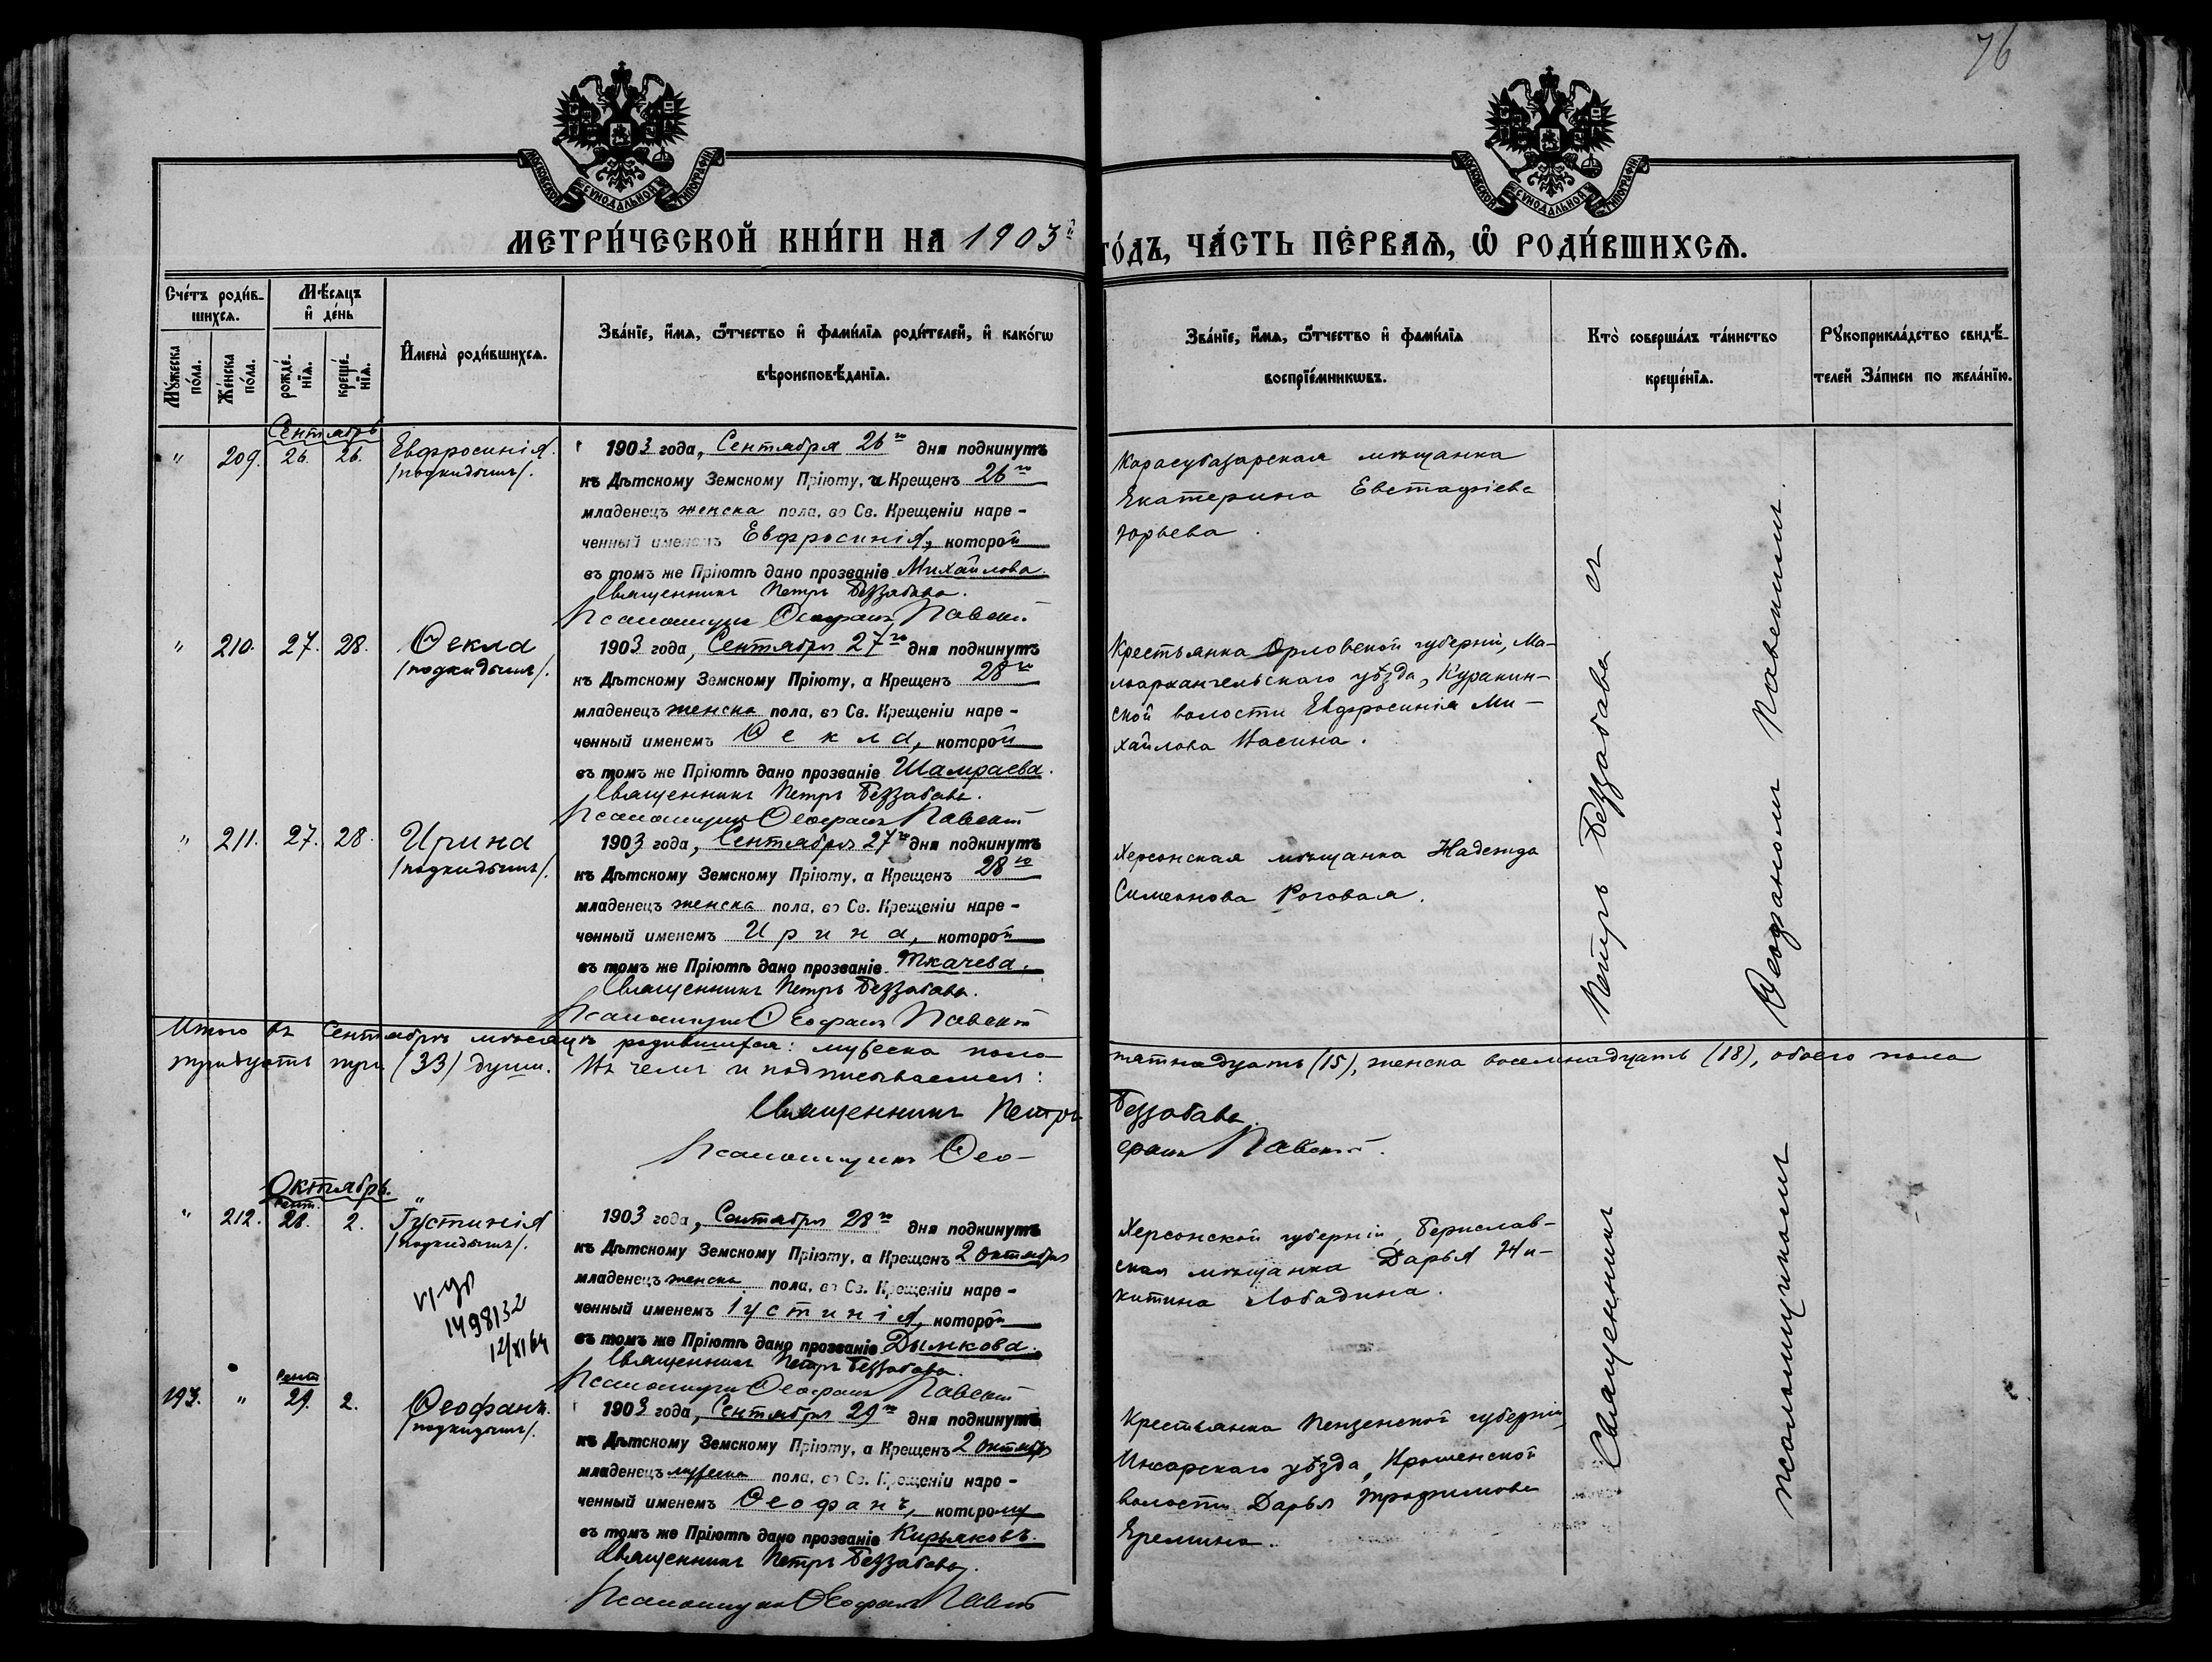 76
МОСКОВСКОЙ СѴНОДАЛЬНОЙ ТИПОГРАФІИ
МОСКОВСКОЙ СѴНОДАЛЬНОЙ ТИПОГРАФІИ
МЕТРИ́ЧЕСКОЙ КНИ́ГИ НА 1903й
ГО́ДЪ, ЧА́СТЬ ПЕ́РВАѦ, Ѡ РОДИ́ВШИХСѦ.
Сче́тъ роди́в-
шихсѧ.
Мѣ́сѧцъ
и҆ де́нь
Мꙋ́жеска
по́ла.
Же́нска
по́ла.
рожде́-
нїѧ.
креще́-
нїѧ.
И҆мена̀ роди́вшихсѧ.
Зва́нїе, и҆́мѧ, ѻ҆́тчество и҆ фами́лїѧ роди́телей, и҆ како́гѡ
вѣроисповѣ́данїѧ.
Зва́нїе, и҆́мѧ, ѻ҆́тчество и҆ фами́лїѧ
воспрїе́мникѡвъ.
Кто̀ соверша́лъ та́инство
креще́нїѧ.
Рꙋкоприкла́дство свидѣ́-
телей За́писи по жела́нїю.
Сентябрь
" 209. 26. 26. Евфросинія
/подкидышъ/.
1903 года, Сентября 26го дня подкинутъ
къ Дѣтскому Земскому Пріюту, и Крещенъ 26го
младенецъ женска пола, во Св. Крещеніи наре-
ченный именемъ Евфросинія, которой
въ томъ же Пріютѣ дано прозваніе Михайлова.
Священникъ Петръ Беззабава.
Псаломщикъ Ѳеофанъ Павскій
Карасубазарская мѣщанка
Екатерина Евстафіева
Юрьева.
" 210. 27. 28. Ѳекла
/подкидышъ/.
1903 года, Сентября 27го дня подкинутъ
къ Дѣтскому Земскому Пріюту, а Крещенъ 28го
младенецъ женска пола, во Св. Крещеніи наре-
ченный именемъ Ѳекла, которой
въ томъ же Пріютѣ дано прозваніе Шамраева.
Священникъ Петръ Беззабава.
Псаломщикъ Ѳеофанъ Павскій
Крестьянка Орловской губерніи, Ма-
лоархангельскаго уѣзда, Куракин-
ской волости Евфросинія Ми-
хайлова
" 211. 27. 28. Ирина
/подкидышъ/.
1903 года, Сентября 27го дня подкинутъ
къ Дѣтскому Земскому Пріюту, а Крещенъ 28го
младенецъ женска пола, во Св. Крещеніи наре-
ченный именемъ Ирина, которой
въ томъ же Пріютѣ дано прозваніе Ткачева.
Священникъ Петръ Беззабава.
Псаломщикъ Ѳеофанъ Павскій
Херсонская мѣщанка Надежда
Симеонова Роговая.
Итого въ Сентябрѣ мѣсяцѣ родившихся: мужеска пола
пятнадцать (15), женска восемнадцать (18), обоего пола
тридцать три (33) души. Въ чемъ и подписываемся:
Священникъ Петръ Беззабава.
Псаломщикъ Ѳео-
фанъ Павскій.
Октябрь.
" 212. Сент. 28. 2. Іустинія
/подкидышъ/.
1498132
12/XI 64
1903 года, Сентября 28го дня подкинутъ
къ Дѣтскому Земскому Пріюту, а Крещенъ 2 октября
младенецъ женска пола, во Св. Крещеніи наре-
ченный именемъ Іустинія, которой
въ томъ же Пріютѣ дано прозваніе Дымкова.
Священникъ Петръ Беззабава.
Псаломщикъ Ѳеофанъ Павскій
Херсонской губерніи, Берислав-
ская мѣщанка Дарья Ни-
китина Лободина.
193. " Сент 29. 2. Ѳеофанъ.
/подкидышъ/.
1903 года, Сентября 29го дня подкинутъ
къ Дѣтскому Земскому Пріюту, а Крещенъ 2 октября
младенецъ мужеска пола, во Св. Крещеніи наре-
ченный именемъ Ѳеофанъ, которому
въ томъ же Пріютѣ дано прозваніе Кирьяковъ.
Священникъ Петръ Беззабава.
Псаломщикъ Ѳеофанъ Павскій
Крестьянка Пензенской губерніи,
Инсарскаго уѣзда, волости Дарья Трофимова
Еремина.
Священникъ Петръ Беззабава съ
псаломщикомъ Ѳеофаномъ Павскимъ.